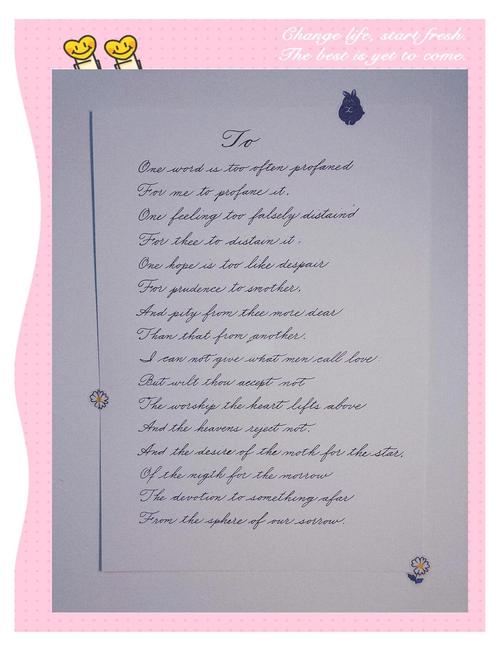 Change life, start fresh.
The best is yet to come.
To
One word is too often profaned
For me to profane it.
One feeling too falsely distain'd
For thee to distain it.
One hope is too like despair
For prudence to smother.
And pity from thee more dear
Than that from another.
I can not give what men call love.
But wilt thou accept not
The worship the heart lifts above
And the heavens reject not.
And the desire of the moth for the star.
Of the nigth for the morrow
The devotion to something afar
From the sphere of our sorrow.